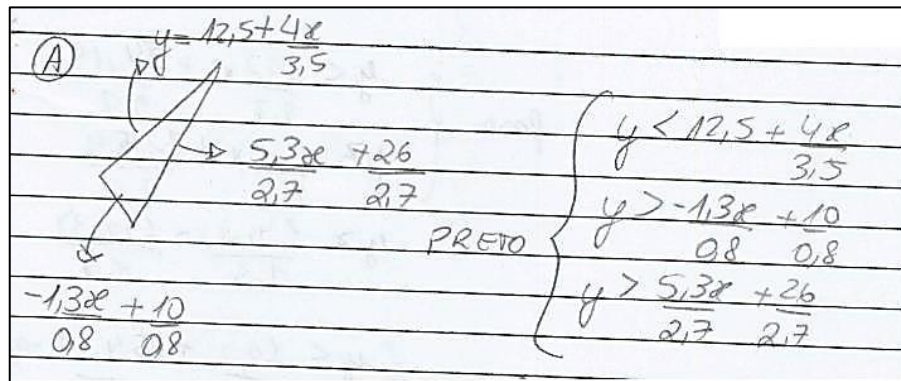 A
y = 12,5 + 4x/3,5
5,3x/2,7 + 26/2,7
-1,3x/0,8 + 10/0,8
PRETO
y < 12,5 + 4x/3,5
y > -1,3x/0,8 + 10/0,8
y > 5,3x/2,7 + 26/2,7